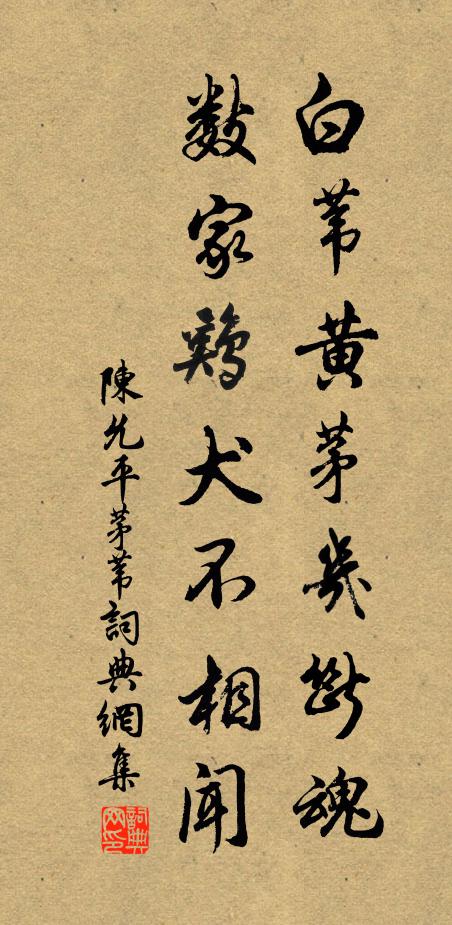 白苇黄茅几断魂
数家鸡犬不相闻
陳允平茅苇詞典網集
詞典网印